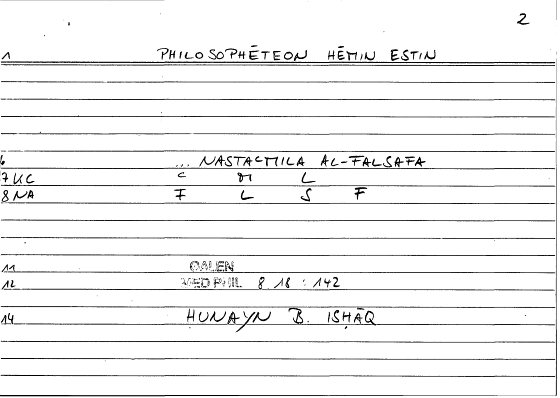 2
1 PHILOSOPHĒTEON HĒMIN ESTIN
6 ... NASTAʿMILA AL-FALSAFA
7 UC ʿ M L
8 NA F L S F
11 GALEN
12 MED PHIL 8.18 : 142
14 ḤUNAYN B. ISḤĀQ